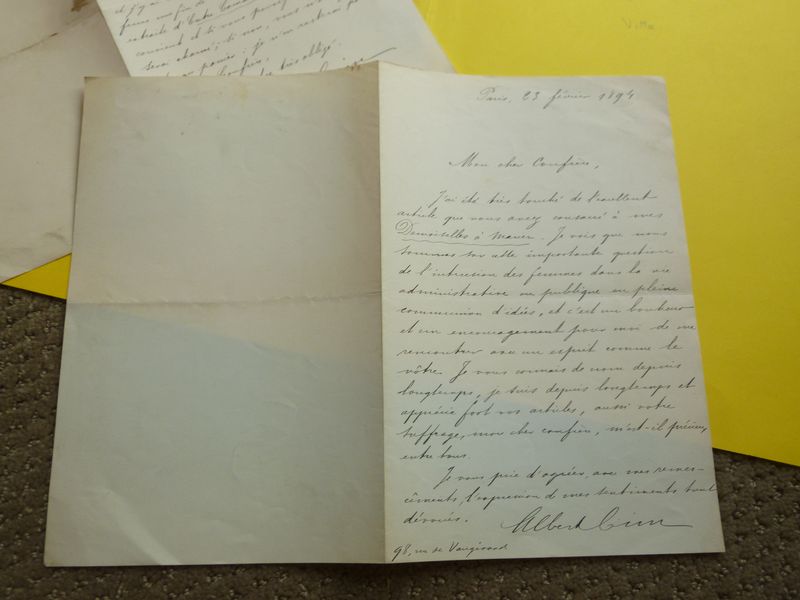 et j'y
extraits d'
convient et si vous
serai charmé; si non, vous
panier: je n'en resterai pas
Confrère,
très obligé.
Paris, 23 février 1894
Mon cher Confrère,
J'ai été très touché de l'excellent
article que vous avez consacré à mes
Demoiselles à marier. Je vois que nous
sommes sur cette importante question
de l'intrusion des femmes dans la vie
administrative ou publique en pleine
communion d'idées, et c'est un bonheur
et un encouragement pour moi de me
rencontrer avec un esprit comme le
vôtre. Je vous connais de nom depuis
longtemps, je suis depuis longtemps et
apprécie fort vos articles, aussi votre
suffrage, mon cher confrère, m'est-il précieux
entre tous.
Je vous prie d'agréer, avec mes remer-
cîments, l'expression de mes sentiments tout
dévoués.
Albert Cim
98, rue de Vaugirard